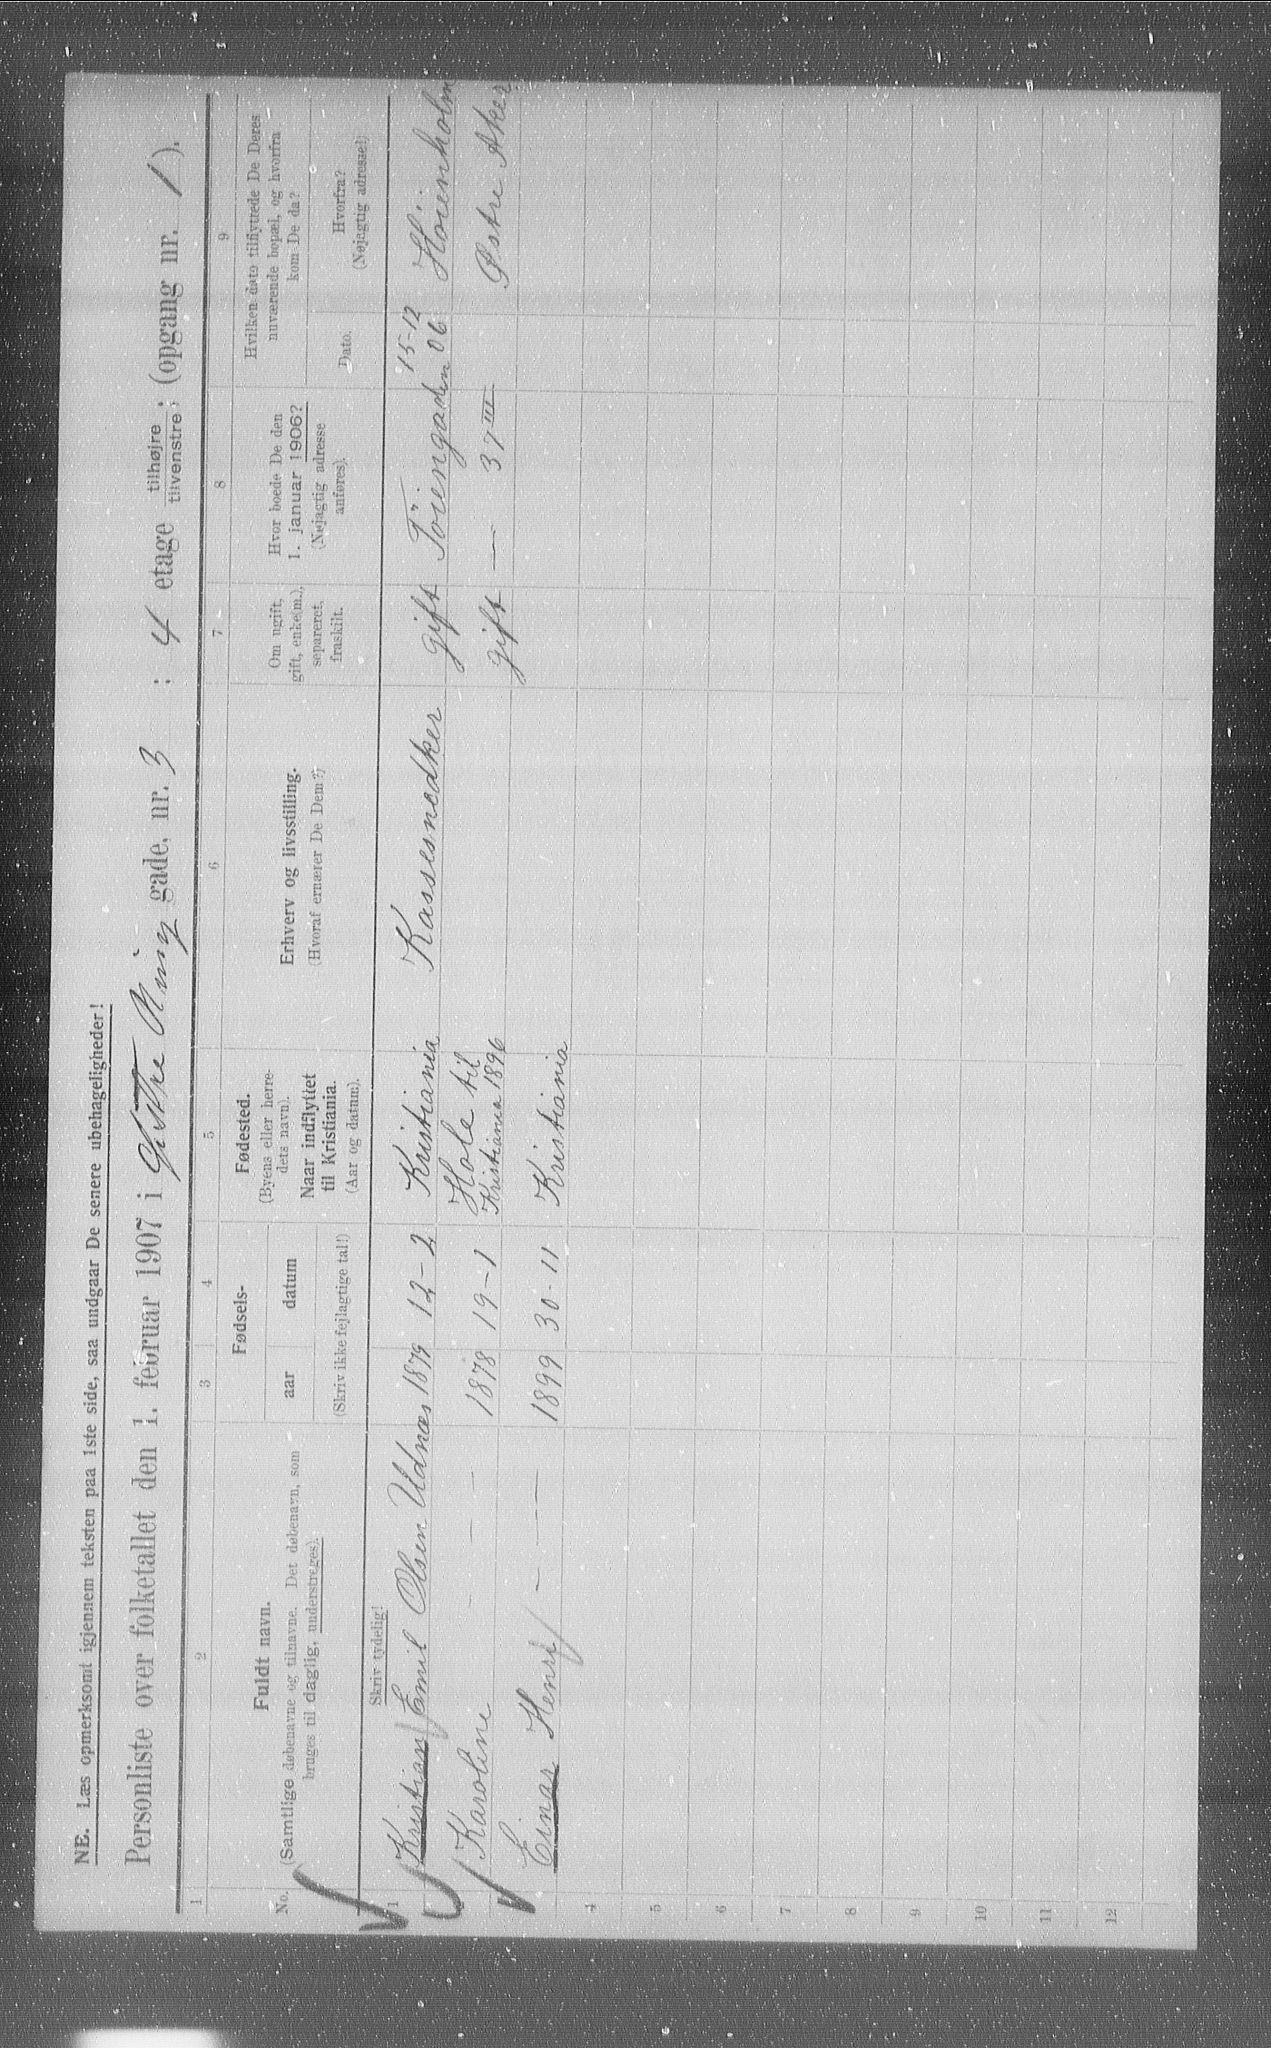 NB. Læs opmerksomt igjennem teksten paa 1ste side, saa undgaar De senere ubehageligheder!
Personliste over folketallet den 1. februar 1907 i Gitthe Riis gade, nr. 3 ; 4 etage tilhøjre tilvenstre ; (opgang nr. 1).
1 2 3 4 5 6 7 8 9
No.
Fuldt navn.
(Samtlige døbenavne og tilnavne. Det døbenavn, som
bruges til daglig, understreges).
Skriv tydelig!
Fødsels-
aar datum
(Skriv ikke fejlagtige tal!)
Fødested.
(Byens eller herre-
dets navn).
Naar indflyttet
til Kristiania.
(Aar og datum).
Erhverv og livsstilling.
(Hvoraf ernærer De Dem?)
Om ugift,
gift, enke(m.),
separeret,
fraskilt.
Hvor boede De den
1. januar 1906?
(Nøjagtig adresse
anføres).
Hvilken dato tilflyttede De Deres
nuværende bopæl, og hvorfra
kom De da?
Dato.
Hvorfra?
(Nøjagtig adresse!)
1 Kristian Emil Olsen Udnæs 1879 12-2 Kristiania Kassesnedker gift Töiengaden 15-12 06 Höienholm
Karoline — — — 1878 19-1 Hole til Kristiania 1896 gift — 37 III Østre Aker
Einar Henry — — — 1899 30-11 Kristiania
4
5
6
7
8
9
10
11
12